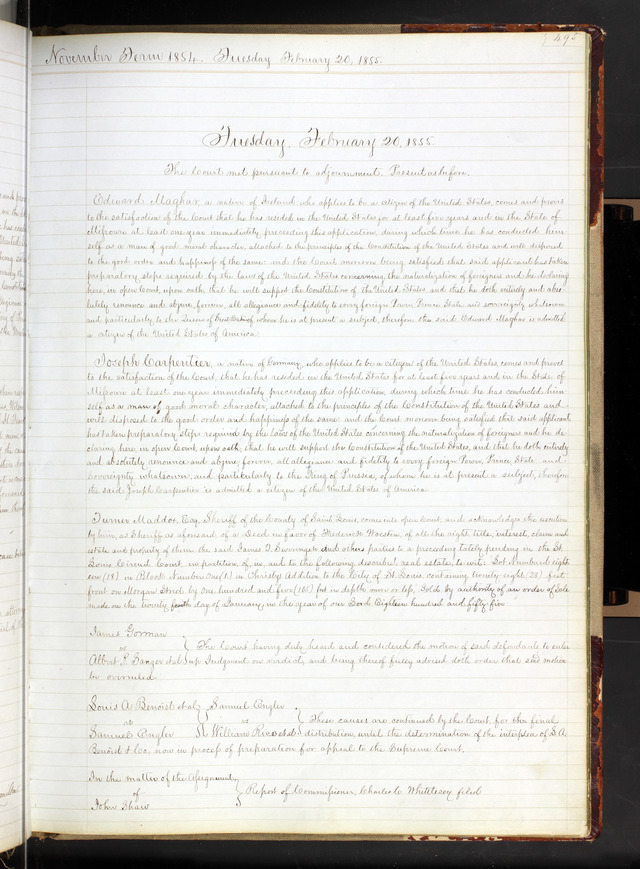 495
November Term 1854. Tuesday February 20, 1855.
Tuesday, February 20, 1855.
The Court met pursuant to adjournment. Present as before.
Edward Maghar, a native of Ireland who applies to be a citizen of the United States, comes and proves
to the satisfaction of the Court that he has resided in the United States for at least five years and in the State of
Missouri at least one year immediately preceding this application, during which time he has conducted him
self as a man of good moral character, attached to the principles of the Constitution of the United States and well disposed
to the good order and happiness of the same and the Court moreover being satisfied that said applicant has taken
preparatory steps required by the laws of the United States concerning the naturalization of foreigners and he declaring
here, in open Court, upon oath, that he will support the Constitution of the United States, and that he doth entirely and abso-
lutely renounce and abjure, forever, all allegiance and fidelity to every foreign Power, Prince, State and sovereignty whatsoever
and particularly to the Queen of Great Britain of whom he is at present a subject, therefore the said Edward Maghar is admitted
a citizen of the United States of America.
Joseph Carpentier, a native of Germany, who applies to be a citizen of the United States, comes and proves
to the satisfaction of the Court, that he has resided in the United States for at least five years and in the State of
Missouri at least one year immediately preceding this application, during which time he has conducted him
self as a man of good moral character, attached to the principles of the Constitution of the United States and
well disposed to the good order and happiness of the same and the Court moreover being satisfied that said applicant
has taken preparatory steps required by the laws of the United States concerning the naturalization of foreigners and he de-
claring here, in open Court, upon oath, that he will support the Constitution of the United States, and that he doth entirely
and absolutely renounce and abjure, forever, all allegiance and fidelity to every foreign Power, Prince, State and
Sovereignty whatsoever and particularly to the King of Prussia, of whom he is at present a subject, therefore
the said Joseph Carpentier is admitted a citizen of the United States of America.
Turner Maddox, Esq. Sheriff of the County of Saint Louis, comes into open Court, and acknowledges the execution
by him, as Sheriff as aforesaid, of a Deed in favor of Frederick Wooston, of all the right, title, interest, claim and
estate and property of them the said James O. Swearingen and others parties to a proceeding lately pending in the St.
Louis Circuit Court, in partition, of, in, and to the following described real estate, to wit: Lot Numbered eigh-
teen (18) in Block Number one (1) in Christy's Addition to the City of St. Louis, containing twenty-eight (28) feet
front on Morgan Street by one hundred and five (105) feet in depth more or less, Sold by authority of an order of Sale
made on the twenty fourth day of January, in the year of our Lord Eighteen hundred and fifty five
James Gorman
vs } The Court having duly heard and considered the motion of said defendants to enter
Albert F. Sanger et al up Judgment on verdict, and being thereof fully advised doth order that said motion
be overruled.
Louis A. Benoist et al } Samuel Engler
vs } vs } These causes are continued by the Court for the final
Samuel Engler } William Rice et al distribution until the determination of the interplea of L. A.
Benoist & Co, now in process of preparation for appeal to the Supreme Court.
In the matter of the Assignment
of } Report of Commissioner, Charles C. Whittelsey filed
John Shaw